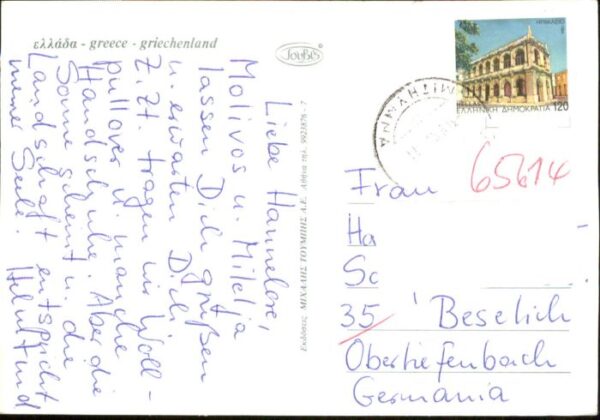 ελλάδα - greece - griechenland
ΤΟΥΒΙ'S
Liebe Hannelore,
Molivos u. Militja
lassen Dich grüßen
u. erwarten Dich.
Z. Zt. tragen wir Woll-
pullover u. manche
Handschuhe. Aber die
Sonne scheint u. die
Landschaft entspricht
meiner Seele. Helmtrud
Εκδόσεις ΜΙΧΑΛΗΣ ΤΟΥΜΠΗΣ Α.Ε. Αθήνα τηλ. 9923876 - 7
ΗΡΑΚΛΕΙΟ
ΕΛΛΗΝΙΚΗ ΔΗΜΟΚΡΑΤΙΑ 120
ΜΙΤΗΥΜΝΑ
65614
Frau
Ha
Sc
35 Beselich
Obertiefenbach
Germania